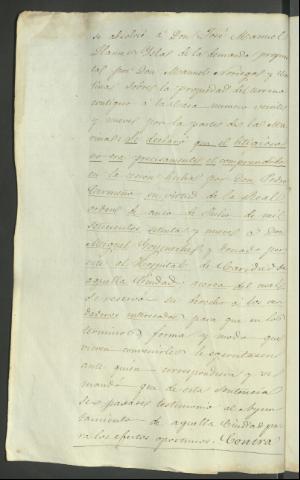 se absolvió á Don José Manuel
Llano y Yslas de la demanda propues
tas por Don Manuel Noriega y Ur
sobre la propiedad del terreno
contiguo á la Casa numero veinte
y nueves por la partes de las Ma
rinas: Se declaró que el litigioso
no era precisamente el comprendido
en la cesion hecha por Don Pedro
Carmona en virtud de la Real
orden de once de Julio de mil
setecientos setenta y nueves á Don
Miguel Goyeneches y donado por
este al Hospital de Caridad de
aquella Ciudad, acerca del cual
se reserva su derecho á los ver
daderos interesados para que en los
terminos forma y modo que
vieren convenirles le egercitasen
ante quien correspondiera y se
mandó que de esta sentencia
se pasáres testimonio al Ayun
tamiento de aquella Ciudad pa
ra los efectos oportunos. Contra